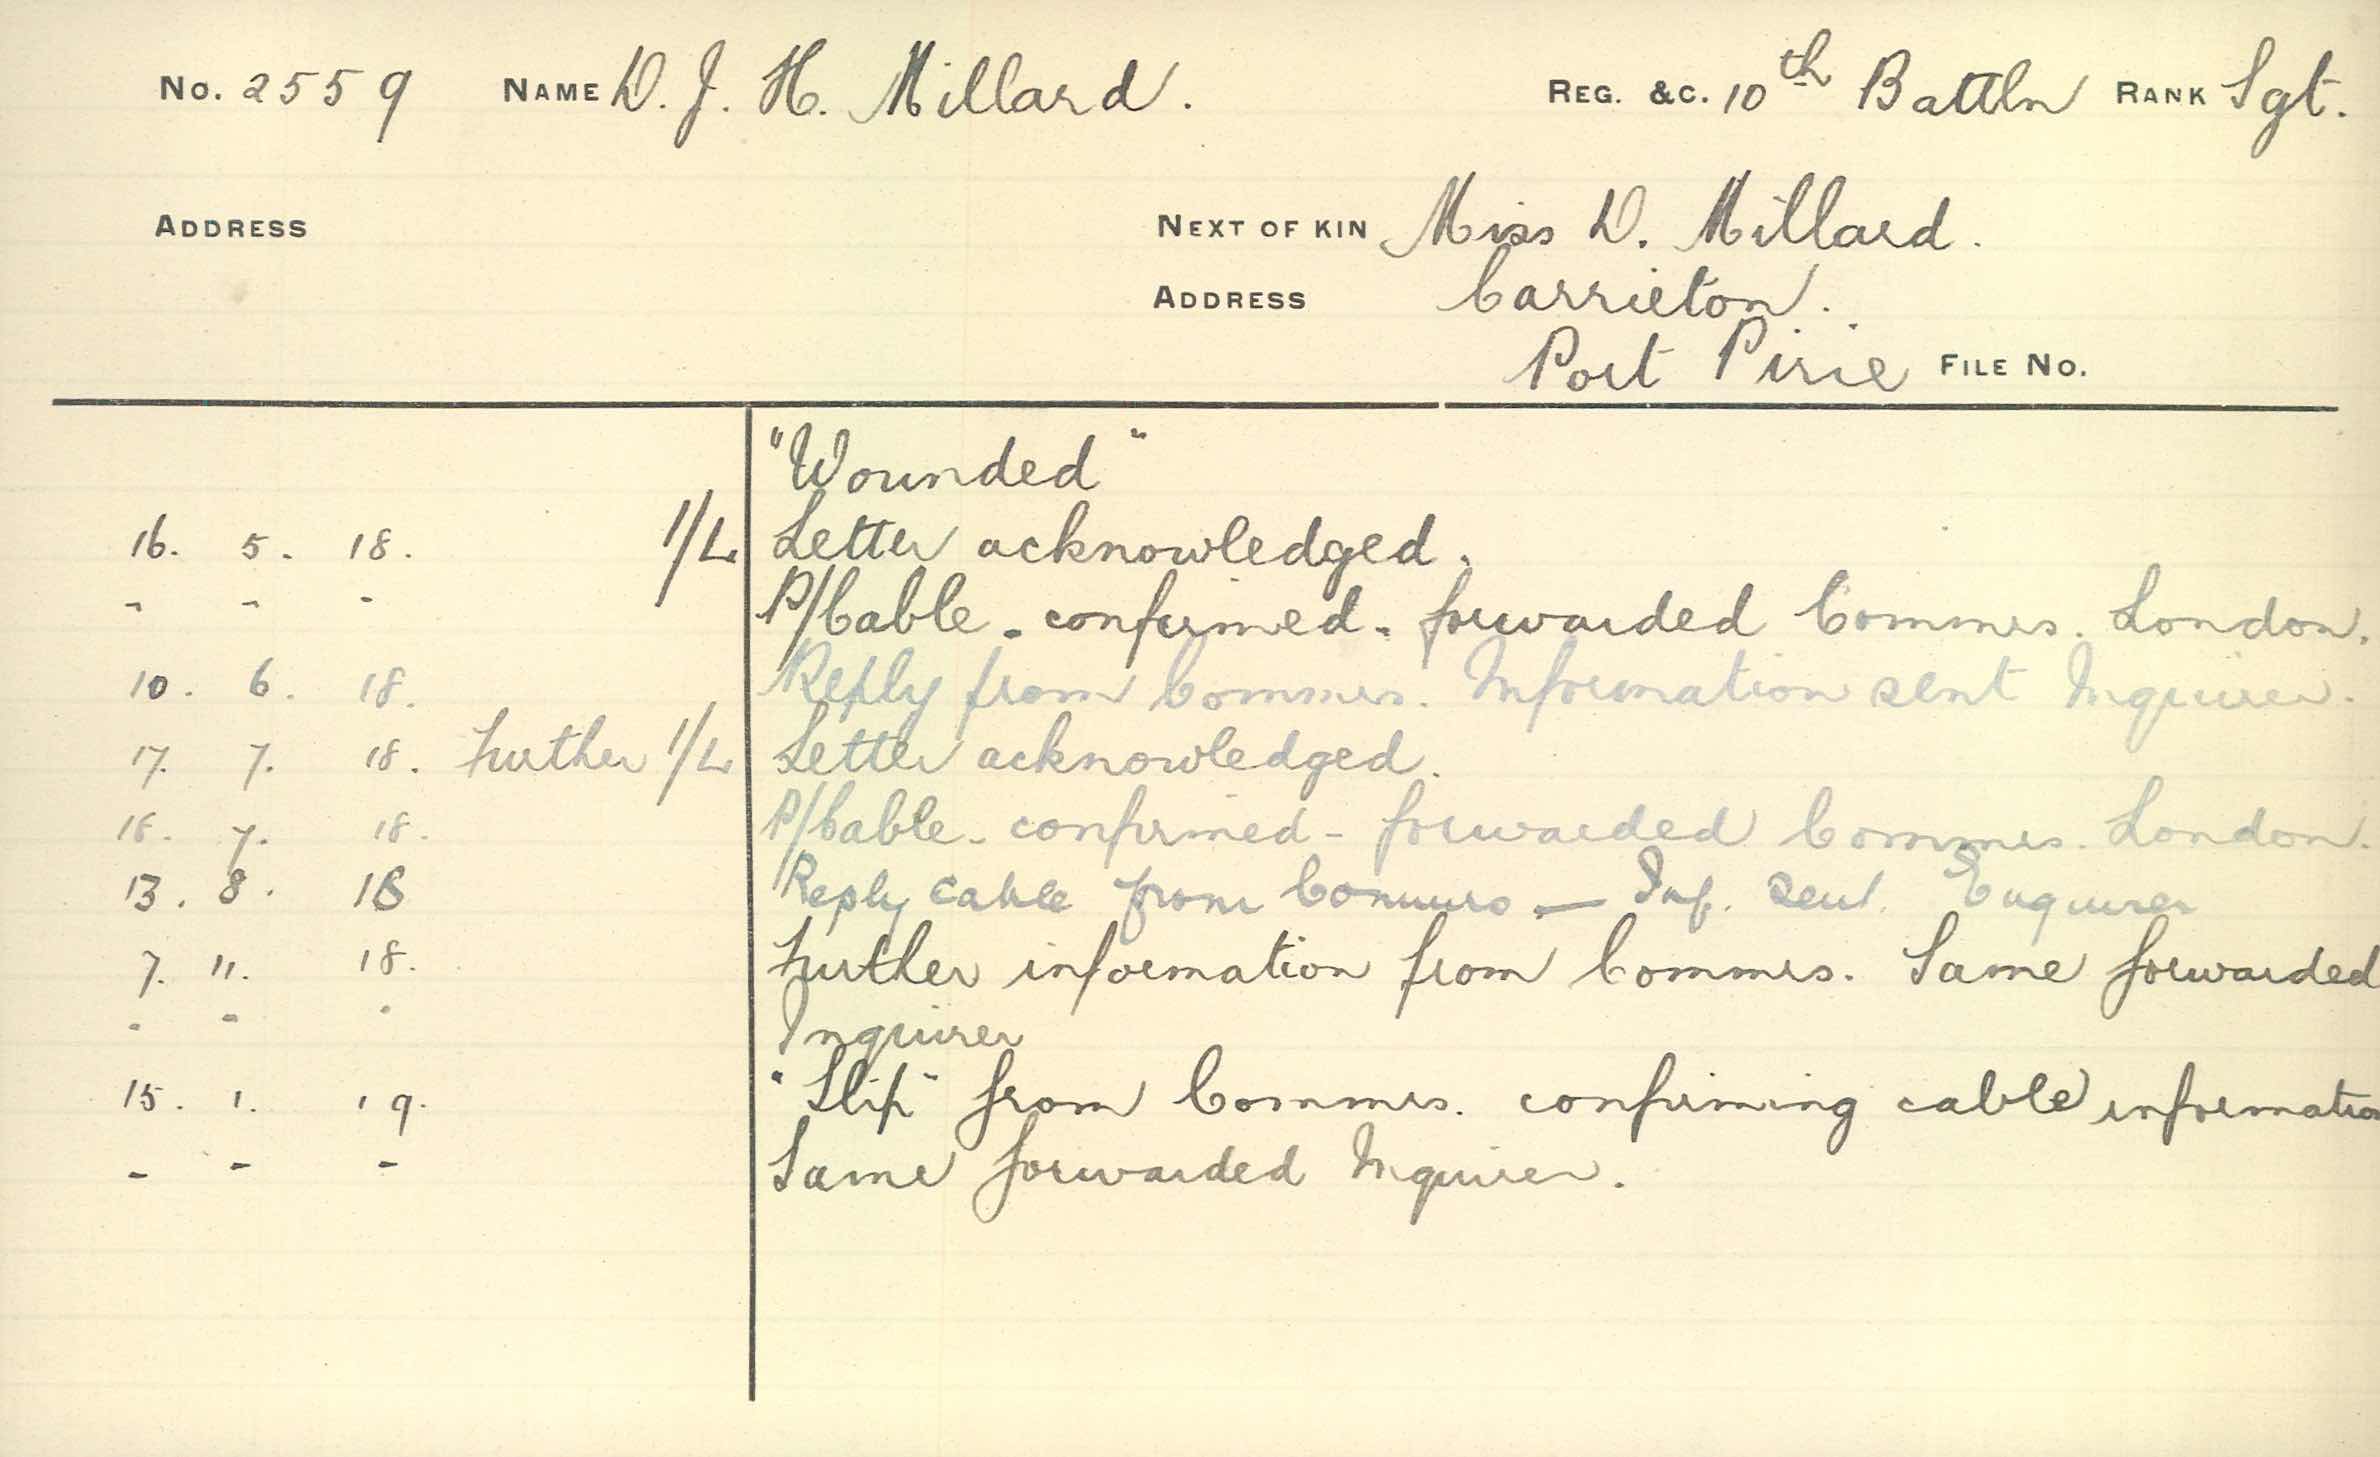 No. 2559 NAME D. J. H. Millard. REG. &C. 10th Battln RANK Sgt.
ADDRESS NEXT OF KIN Miss D. Millard.
ADDRESS Carrieton.
Port Pirie FILE No.
"Wounded"
16. 5. 18. I/L Letter acknowledged.
" " " P/Cable - confirmed - forwarded Commrs. London.
10. 6. 18. Reply from Commrs. Information sent Inquirer.
17. 7. 18. Further I/L Letter acknowledged.
18. 7. 18. P/Cable - confirmed - forwarded Commrs. London.
13. 8. 18 Reply cable from Commrs — Inf. sent. Enquirer
7. 11. 18. Further information from Commrs. Same forwarded
" " " Inquirer
15. 1. 19. "Slip" from Commrs. confirming cable information
- - - Same forwarded Inquirer.